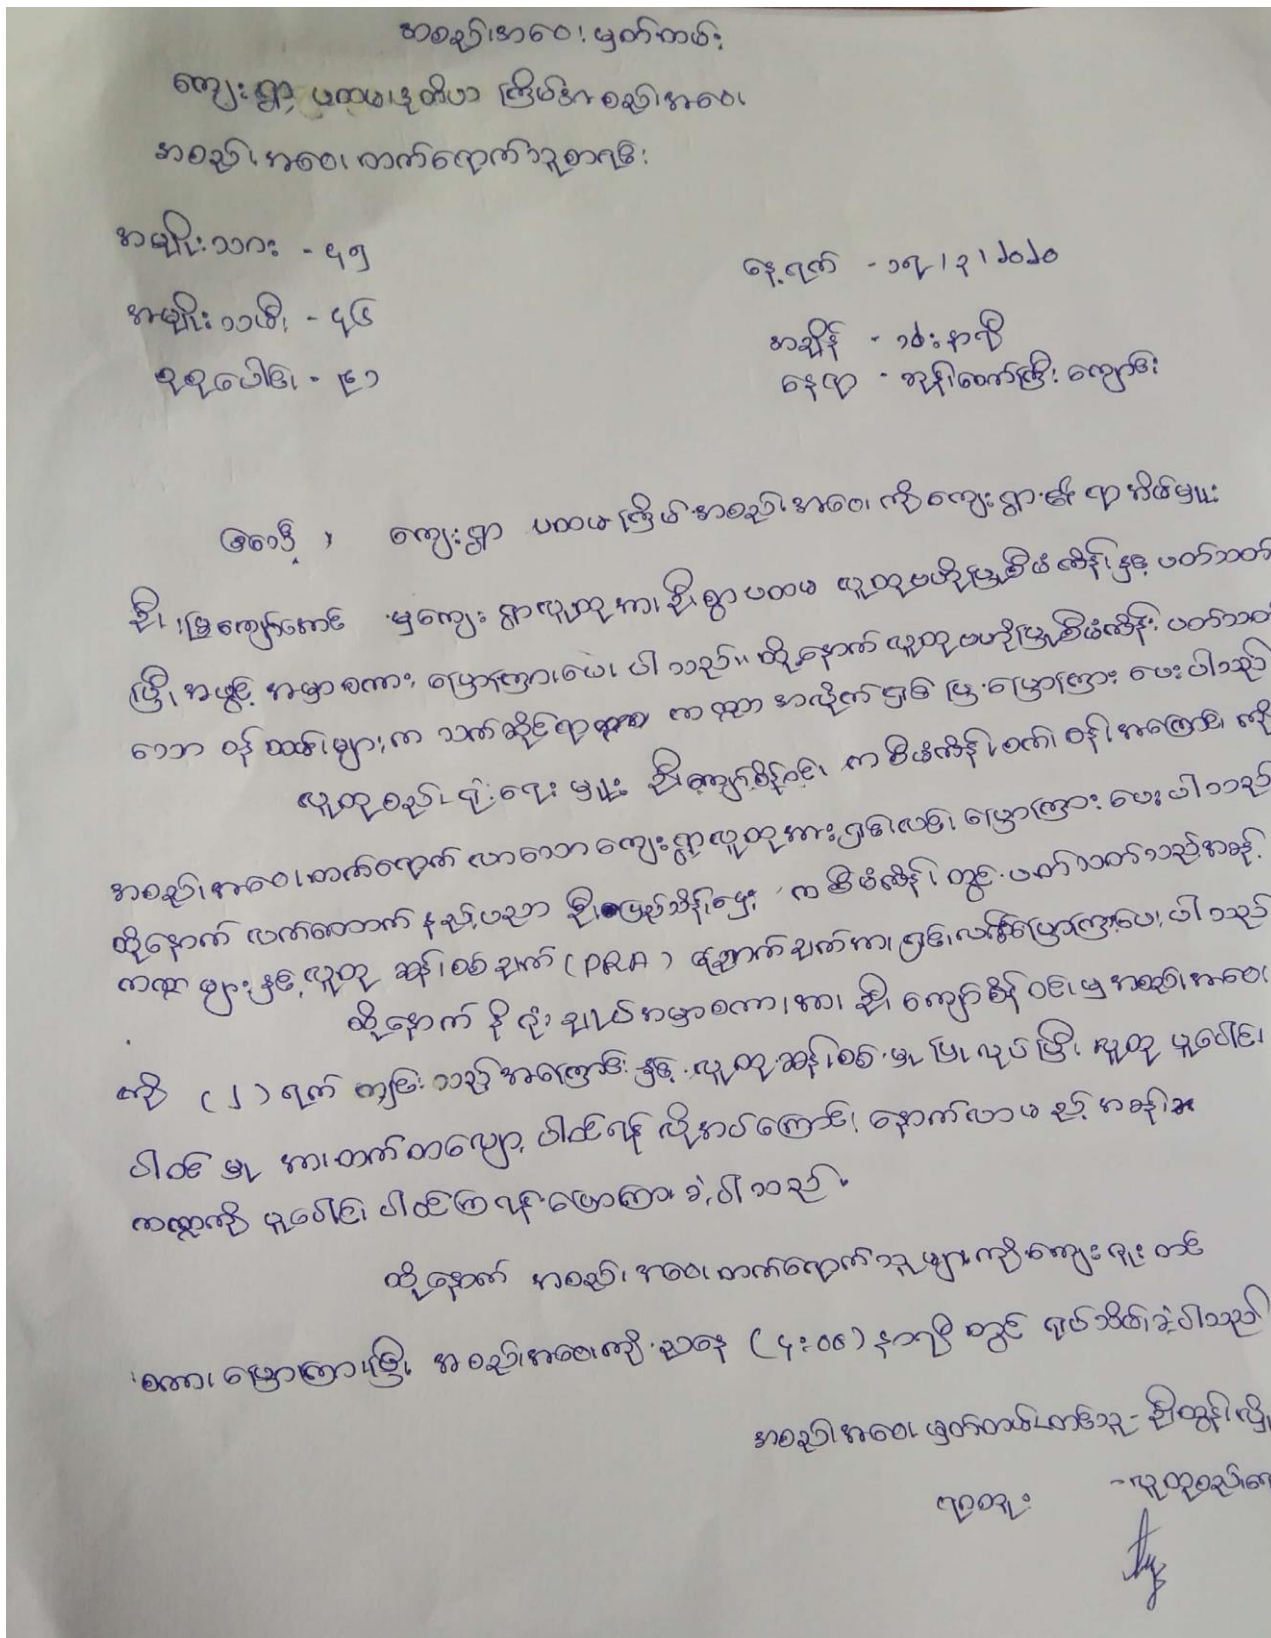 အစည်းအဝေး မှတ်တမ်း
ကျေးရွာ ပထမ၊ဒုတိယ ကြိမ်အစည်းအဝေး
အစည်းအဝေးတက်ရောက်သူစာရင်း
အမျိုးသား - ၄၅
နေ့ရက် - ၁၅၊၃၊၂၀၂၀
အမျိုးသမီး - ၄၆
အချိန် - ၁၂း နာရီ
စုစုပေါင်း - ၉၁
နေရာ - ဘုန်းတော်ကြီး ကျောင်း
ကျေးရွာ ပထမကြိမ် အစည်းအဝေးကို ကျေးရွာ၏ ရာအိမ်မှူး
ဦးမြကျော်အောင် မှ ကျေးရွာလူထုအား ဦးစွာပထမ လူထုဗဟိုပြုစီမံကိန်းနှင့် ပတ်သတ်
ပြီး အဖွင့် အမှာစကား ပြောကြားပေးပါသည်။ ထို့နောက် လူထုဗဟိုပြုစီမံကိန်း ပတ်သတ်
သော ဝန်ထမ်းများက သက်ဆိုင်ရာ ကဏ္ဍအလိုက် ရှင်းပြ ပြောကြားပေးပါသည်
လူထုစည်းရုံးရေးမှူး ဦးကျော်စိန်ဝင်း က စီမံကိန်းစက်ဝန်းအကြောင်း ကို
အစည်းအဝေးတက်ရောက်လာသော ကျေးရွာလူထုအား ရှင်းလင်း ပြောကြားပေးပါသည်
ထို့နောက် လက်ထောက် နည်းပညာ ဦးပြည်သိန်းဌေး က စီမံကိန်း တွင် ပတ်သတ်သည့်အခန်း
ကဏ္ဍများနှင့် လူထု ဆန်းစစ်ချက် (PRA) ကောက်ချက်အား ရှင်းလင်းပြောကြားပေးပါသည်
ထို့နောက် နိဂုံးချုပ်အမှာစကားအား ဦးကျော်စိန်ဝင်းမှ အစည်းအဝေး
ကို (၂) ရက် ကျင်းပသည့်အကြောင်းနှင့် လူထုဆန်းစစ်မှု ပြုလုပ်ပြီး လူထု ပူးပေါင်း
ပါဝင်မှု အားတက်သရော ပါဝင်ရန် လိုအပ်ကြောင်း နောက်လာမည့် အခန်း
ကဏ္ဍကို ပူးပေါင်းပါဝင်ကြရန် ပြောကြားခဲ့ပါသည်။
ထို့နောက် အစည်းအဝေးတက်ရောက်သူများကို ကျေးဇူးတင်
စကား ပြောကြားပြီး အစည်းအဝေးကို ညနေ (၄:၀၀) နာရီ တွင် ရုပ်သိမ်းခဲ့ပါသည်
အစည်းအဝေး မှတ်တမ်းတင်သူ - ဦးထွန်းလှိုင်
ရာထူး - လူထုစည်းရ